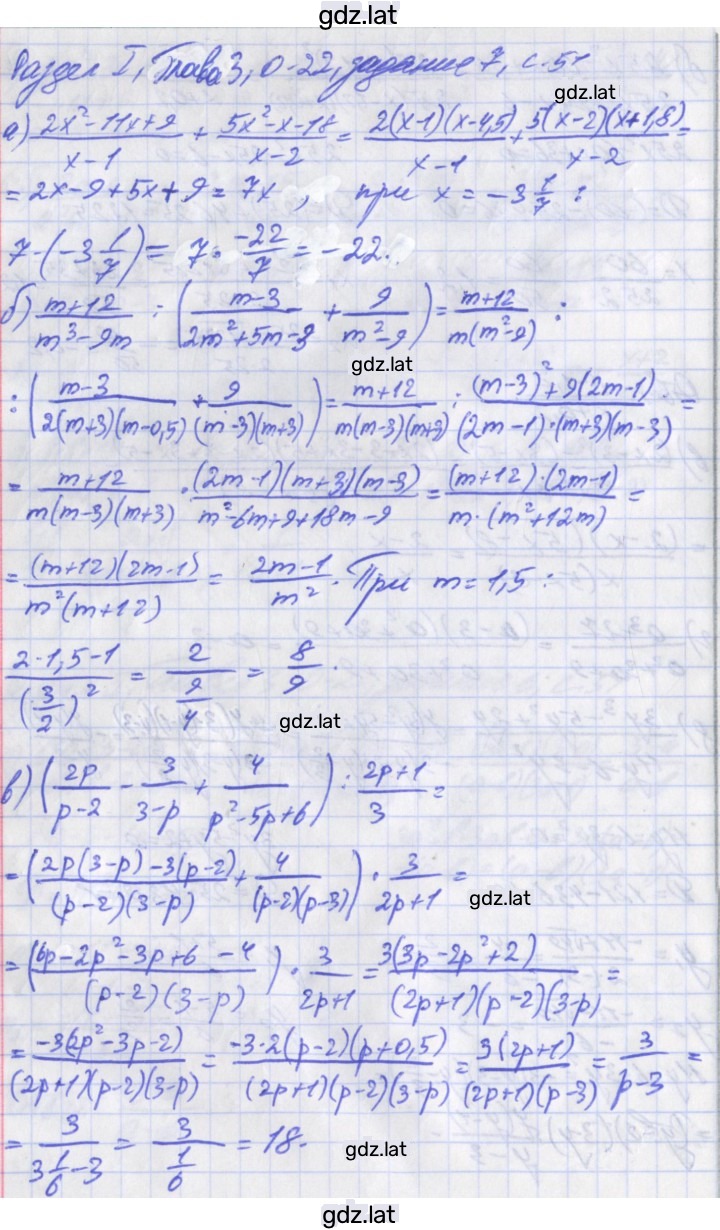 gdz.lat
Раздел I, Глава 3, О-22, задание 7, с. 51
gdz.lat
а) (2x²-11x+9)/(x-1) + (5x²-x-18)/(x-2) = 2(x-1)(x-4,5)/(x-1) + 5(x-2)(x+1,8)/(x-2) =
= 2x-9+5x+9 = 7x, при x = -3 1/7 :
7·(-3 1/7) = 7· -22/7 = -22.
б) (m+12)/(m³-9m) : ((m-3)/(2m²+5m-3) + 9/(m²-9)) = (m+12)/(m(m²-9)) :
gdz.lat
: ((m-3)/(2(m+3)(m-0,5)) + 9/((m-3)(m+3))) = (m+12)/(m(m-3)(m+3)) : ((m-3)²+9(2m-1))/((2m-1)·(m+3)(m-3)) =
= (m+12)/(m(m-3)(m+3)) · (2m-1)(m+3)(m-3)/(m²-6m+9+18m-9) = (m+12)·(2m-1)/(m·(m²+12m)) =
= (m+12)(2m-1)/(m²(m+12)) = (2m-1)/m². При m = 1,5 :
(2·1,5-1)/(3/2)² = 2/(9/4) = 8/9.
gdz.lat
в) (2p/(p-2) - 3/(3-p) + 4/(p²-5p+6)) : (2p+1)/3 =
= ((2p(3-p)-3(p-2))/((p-2)(3-p)) + 4/((p-2)(p-3))) · 3/(2p+1) =
gdz.lat
= ((6p-2p²-3p+6 -4)/((p-2)(3-p))) · 3/(2p+1) = 3(3p-2p²+2)/((2p+1)(p-2)(3-p)) =
= -3(2p²-3p-2)/((2p+1)(p-2)(3-p)) = -3·2(p-2)(p+0,5)/((2p+1)(p-2)(3-p)) = 3(2p+1)/((2p+1)(p-3)) = 3/(p-3) =
= 3/(3 1/6 -3) = 3/(1/6) = 18.
gdz.lat
gdz.lat